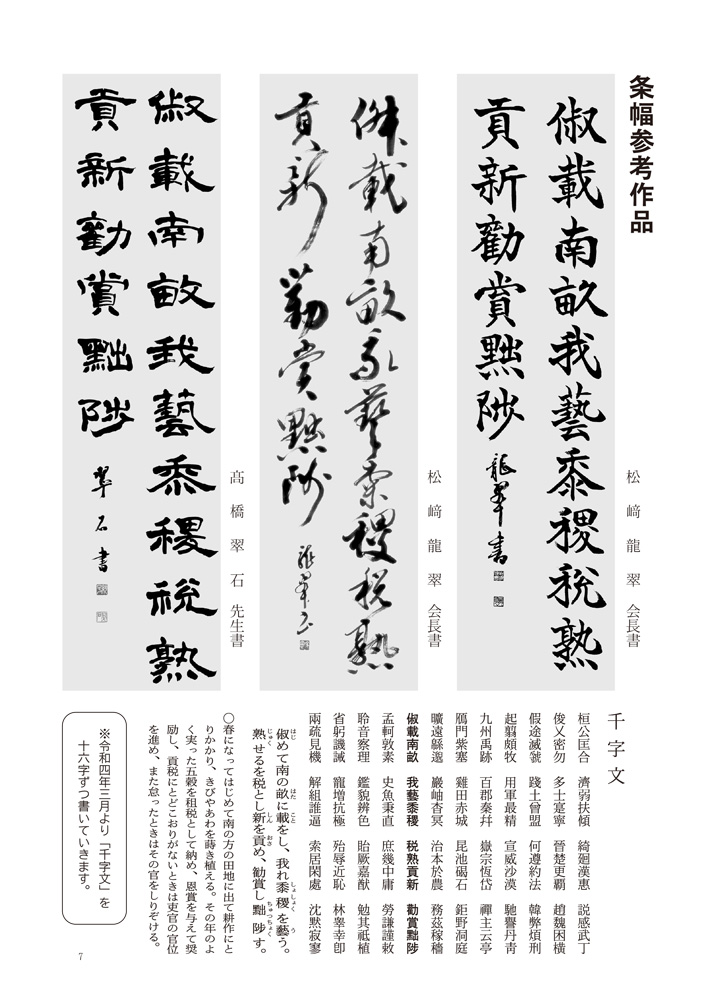 条幅参考作品
俶載南畝我藝黍稷税熟
貢新勸賞黜陟
龍翠書
松﨑龍翠 会長書
俶載南畝我藝黍稷税熟
貢新勸賞黜陟
龍翠書
松﨑龍翠 会長書
俶載南畝我藝黍稷税熟
貢新勸賞黜陟
翠石書
髙橋翠石 先生書
千字文
桓公匡合 濟弱扶傾 綺廻漢惠 説感武丁
俊乂密勿 多士寔寧 晉楚更覇 趙魏困横
假途滅虢 踐土曾盟 何遵約法 韓弊煩刑
起翦頗牧 用軍最精 宣威沙漠 馳譽丹靑
九州禹跡 百郡秦幷 嶽宗恆岱 禪主云亭
鴈門紫塞 雞田赤城 昆池碣石 鉅野洞庭
曠遠緜邈 巖岫杳冥 治本於農 務茲稼穡
俶載南畝 我藝黍稷 税熟貢新 勸賞黜陟
孟軻敦素 史魚秉直 庶幾中庸 勞謙謹敕
聆音察理 鑑貌辨色 貽厥嘉猷 勉其祗植
省躬譏誡 寵增抗極 殆辱近恥 林皋幸卽
兩疏見機 解組誰逼 索居閑處 沈默寂寥
俶めて南の畝に載をし、我れ黍稷を藝う。
熟せるを税とし新を貢め、勧賞し黜陟す。
〇春になってはじめて南の方の田地に出て耕作にと
りかかり、きびやあわを蒔き植える。その年のよ
く実った五穀を租税として納め、恩賞を与えて奨
励し、貢税にとどこおりがないときは吏官の官位
を進め、また怠ったときはその官をしりぞける。
※令和四年三月より「千字文」を
十六字ずつ書いていきます。
7